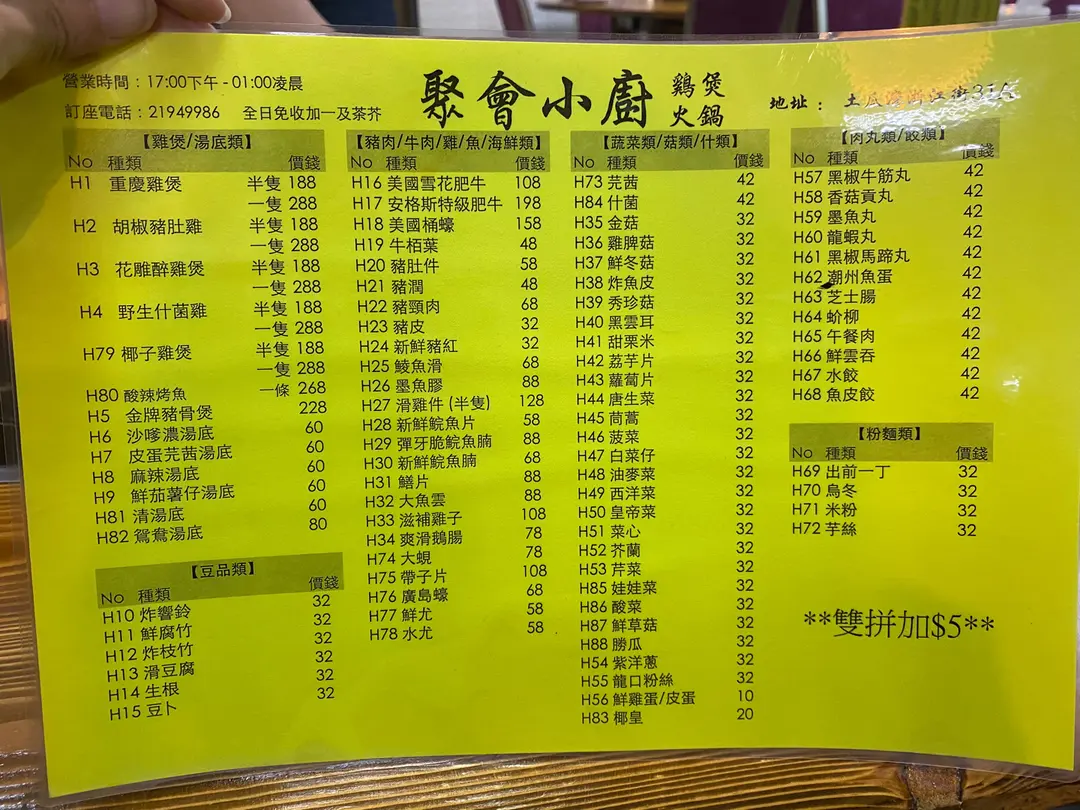 營業時間：17:00下午 - 01:00凌晨
訂座電話：21949986 全日免收加一及茶芥
聚會小廚 鷄煲
火鍋
地址： 土瓜灣浙江街
【雞煲/湯底類】
No 種類 價錢
H1 重慶雞煲 半隻 188
一隻 288
H2 胡椒豬肚雞 半隻 188
一隻 288
H3 花雕醉雞煲 半隻 188
一隻 288
H4 野生什菌雞 半隻 188
一隻 288
H79 椰子雞煲 半隻 188
一隻 288
H80 酸辣烤魚 一條 268
H5 金牌豬骨煲 228
H6 沙嗲濃湯底 60
H7 皮蛋芫茜湯底 60
H8 麻辣湯底 60
H9 鮮茄薯仔湯底 60
H81 清湯底 60
H82 鴛鴦湯底 80
【豆品類】
No 種類 價錢
H10 炸響鈴 32
H11 鮮腐竹 32
H12 炸枝竹 32
H13 滑豆腐 32
H14 生根 32
H15 豆卜 32
【豬肉/牛肉/雞/魚/海鮮類】
No 種類 價錢
H16 美國雪花肥牛 108
H17 安格斯特級肥牛 198
H18 美國桶蠔 158
H19 牛栢葉 48
H20 豬肚件 58
H21 豬潤 48
H22 豬頸肉 68
H23 豬皮 32
H24 新鮮豬紅 32
H25 鯪魚滑 68
H26 墨魚膠 88
H27 滑雞件 (半隻) 128
H28 新鮮鯇魚片 58
H29 彈牙脆鯇魚腩 88
H30 新鮮鯇魚腩 68
H31 鱔片 88
H32 大魚雲 88
H33 滋補雞子 108
H34 爽滑鵝腸 78
H74 大蜆 78
H75 帶子片 108
H76 廣島蠔 68
H77 鮮尤 58
H78 水尤 58
【蔬菜類/菇類/什類】
No 種類 價錢
H73 芫茜 42
H84 什菌 42
H35 金菇 32
H36 雞脾菇 32
H37 鮮冬菇 32
H38 炸魚皮 32
H39 秀珍菇 32
H40 黑雲耳 32
H41 甜粟米 32
H42 荔芋片 32
H43 蘿蔔片 32
H44 唐生菜 32
H45 茼蒿 32
H46 菠菜 32
H47 白菜仔 32
H48 油麥菜 32
H49 西洋菜 32
H50 皇帝菜 32
H51 菜心 32
H52 芥蘭 32
H53 芹菜 32
H85 娃娃菜 32
H86 酸菜 32
H87 鮮草菇 32
H88 勝瓜 32
H54 紫洋蔥 32
H55 龍口粉絲 32
H56 鮮雞蛋/皮蛋 10
H83 椰皇 20
【肉丸類/餃類】
No 種類 價錢
H57 黑椒牛筋丸 42
H58 香菇貢丸 42
H59 墨魚丸 42
H60 龍蝦丸 42
H61 黑椒馬蹄丸 42
H62 潮州魚蛋 42
H63 芝士腸 42
H64 蚧柳 42
H65 午餐肉 42
H66 鮮雲吞 42
H67 水餃 42
H68 魚皮餃 42
【粉麵類】
No 種類 價錢
H69 出前一丁 32
H70 烏冬 32
H71 米粉 32
H72 芋絲 32
**雙拼加$5**